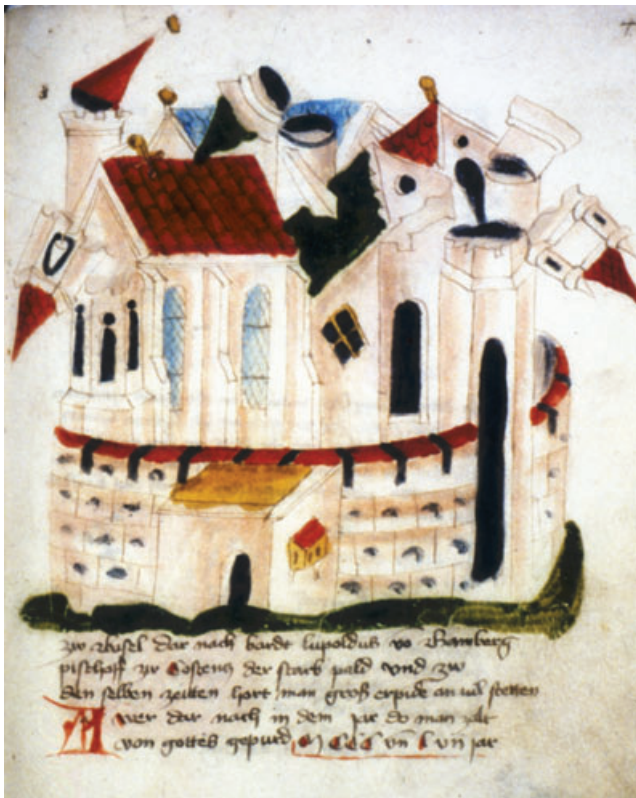 zw Basel dar nach bardt lupoldus vo Bamberg
pischoff zw Costencz der starb pald vnd zw
den selben zeitten hort man groß erpidē an vil stetten
Awer dar nach in dem jar do man zalt
von gottes gepurd M CCC vn l vn jar